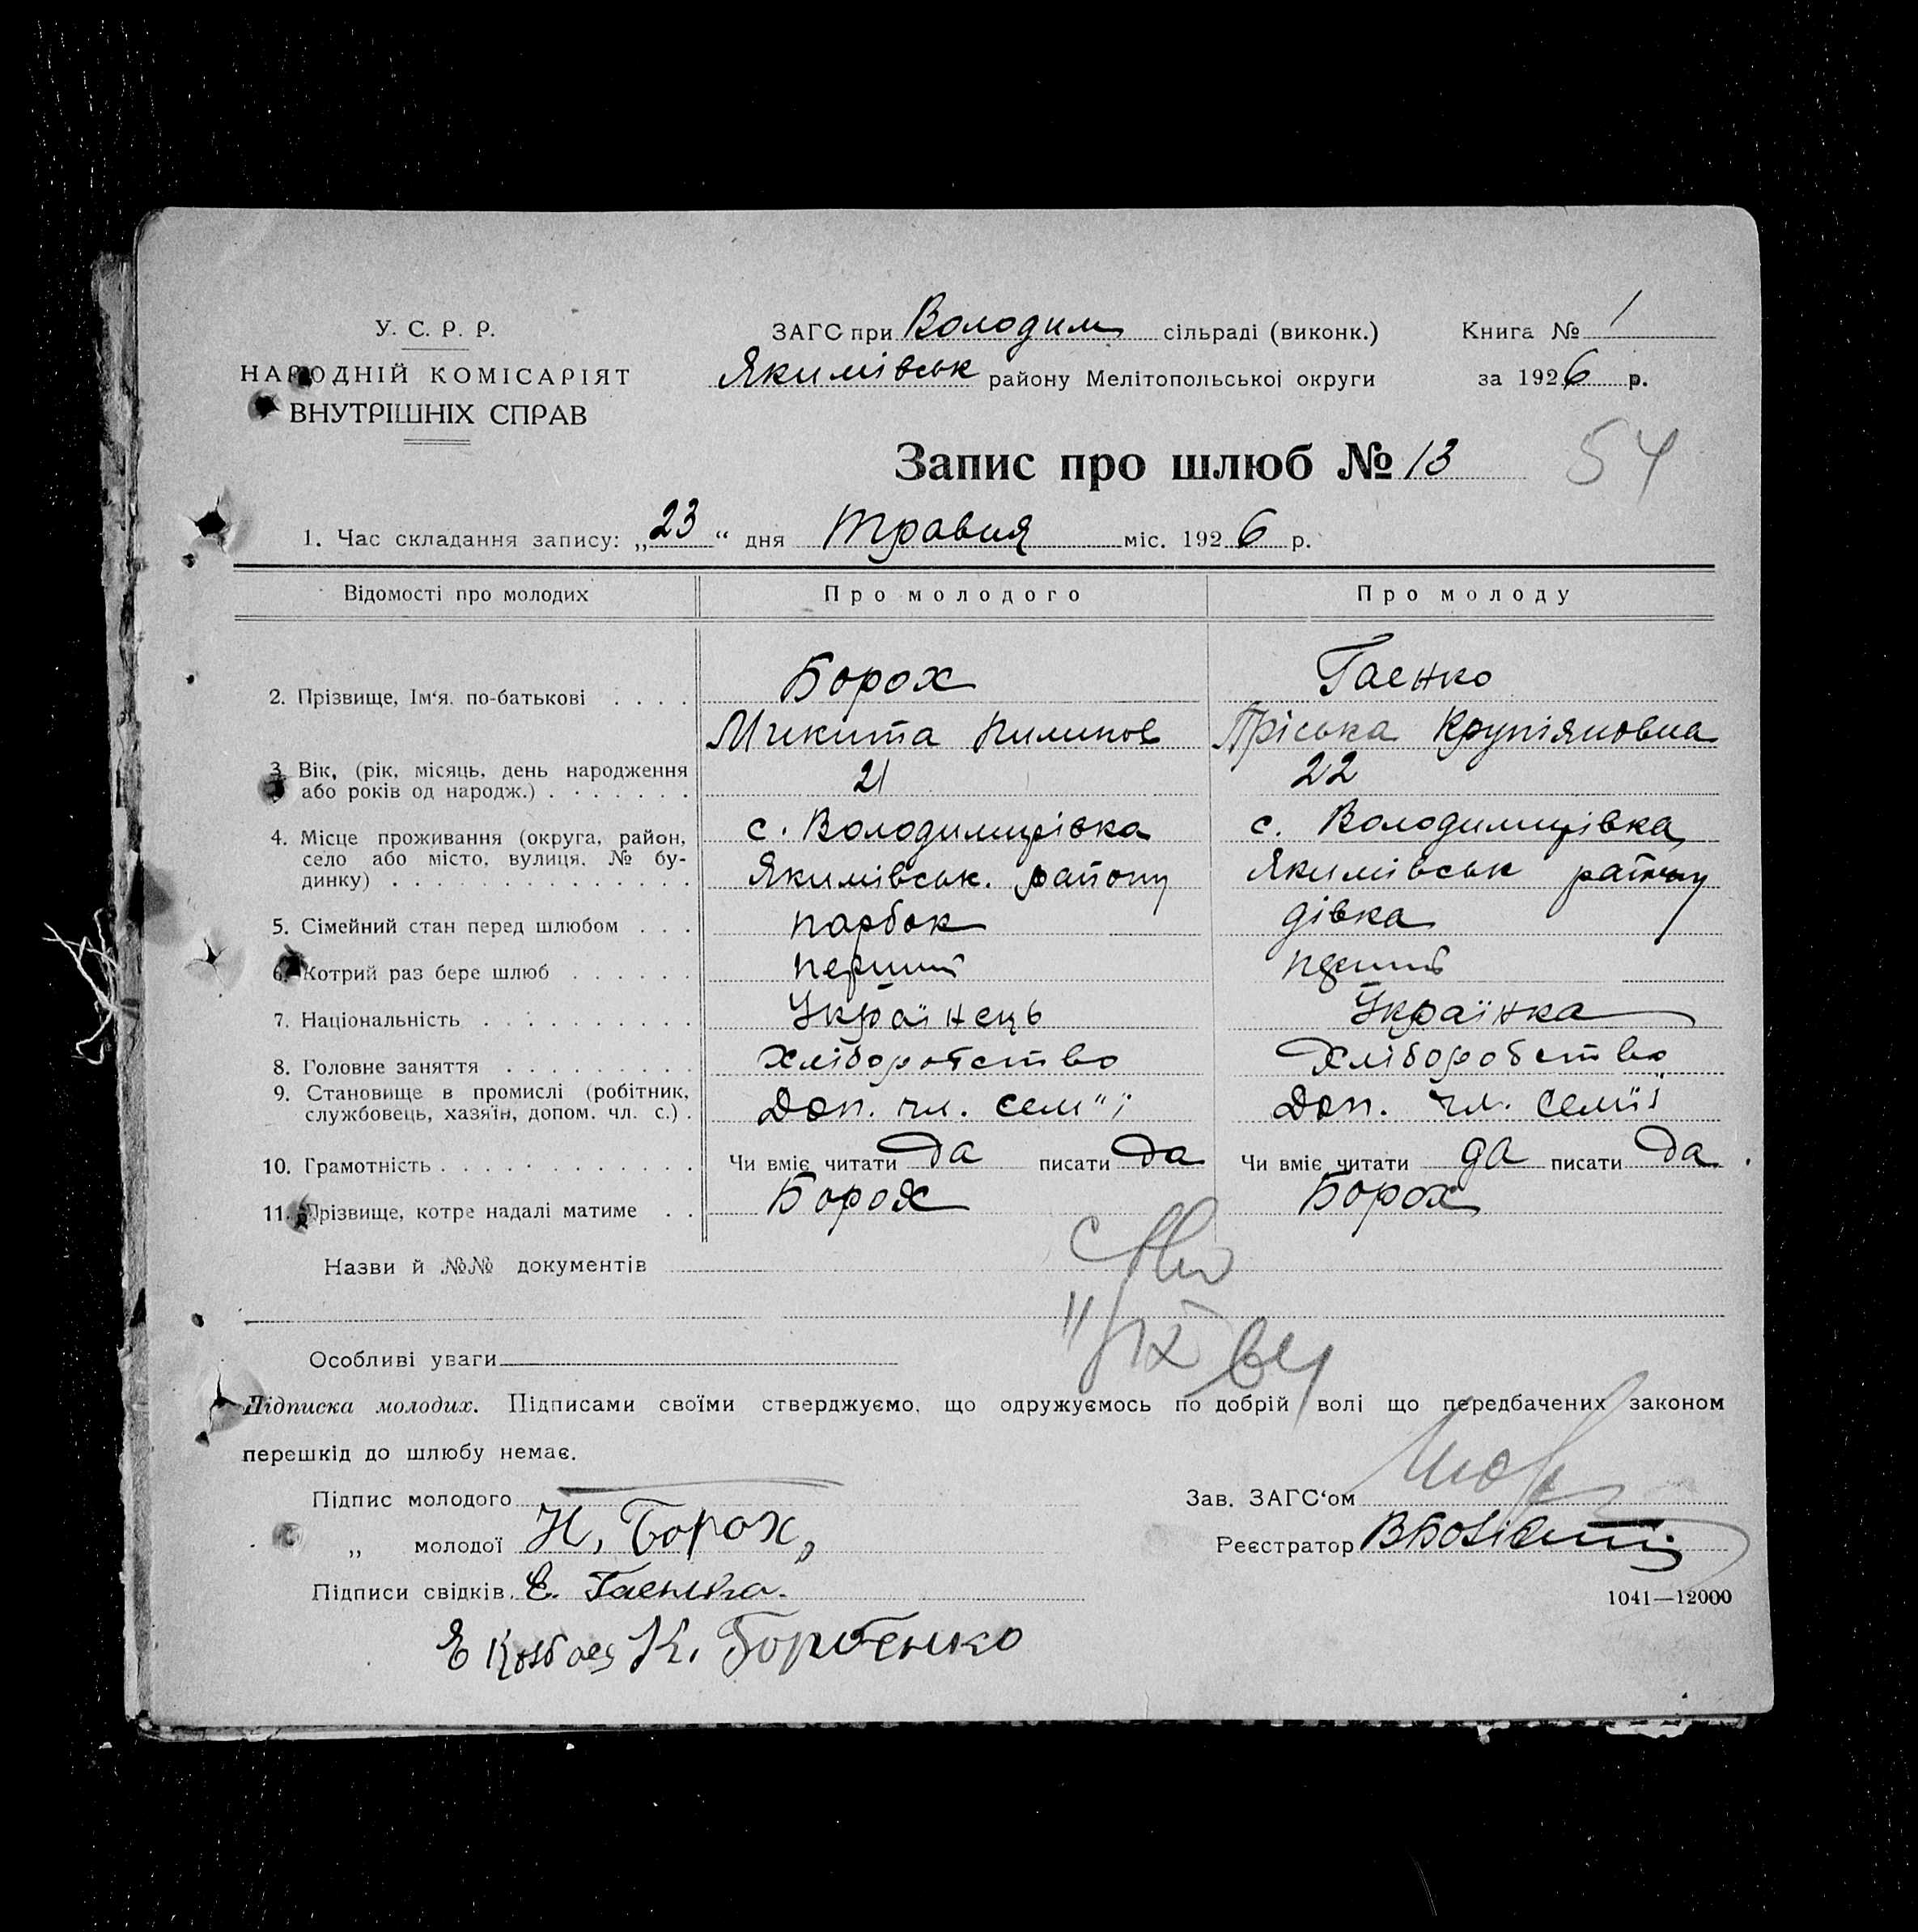 У. С. Р. Р.
НАРОДНІЙ КОМІСАРІЯТ
ВНУТРІШНІХ СПРАВ
ЗАГС при Володим сільраді (виконк.)
Якимівськ району Мелітопольської округи
Книга № 1
за 1926 р.
Запис про шлюб № 13
54
1. Час складання запису: „23“ дня Травня міс. 1926 р.
Відомості про молодих Про молодого Про молоду
2. Прізвище, Ім'я. по-батькові . . . . Борох Гаенко
Микита Пилипов Пріська
3. Вік, (рік, місяць, день народження
або років од народж.) . . . . . . . 21 22
4. Місце проживання (округа, район,
село або місто, вулиця. № бу-
динку) . . . . . . . . . . . . . .
с. Володимирівка с. Володимирівка
Якимівськ. району Якимівськ району
5. Сімейний стан перед шлюбом . . . парбок дівка
6. Котрий раз бере шлюб . . . . . . перший
7. Національність . . . . . . . . . . Українець Українка
8. Головне заняття . . . . . . . . . Хліборобство Хліборобство
9. Становище в промислі (робітник,
службовець, хазяїн, допом. чл. с.) . Доп. чл. семʺї Доп. чл. семʺї
10. Грамотність . . . . . . . . . . . . Чи вміє читати да писати да Чи вміє читати да писати да
11. Прізвище, котре надалі матиме . . Борох Борох
Назви й №№ документів
Особливі уваги
Підписка молодих. Підписами своїми стверджуємо, що одружуємось по добрій волі що передбачених законом
перешкід до шлюбу немає.
Підпис молодого
„ молодої Н, Борох,
Підписи свідків. Е. Гаенко.
К. Горбенко
Зав. ЗАГС‘ом
Реєстратор
1041—12000